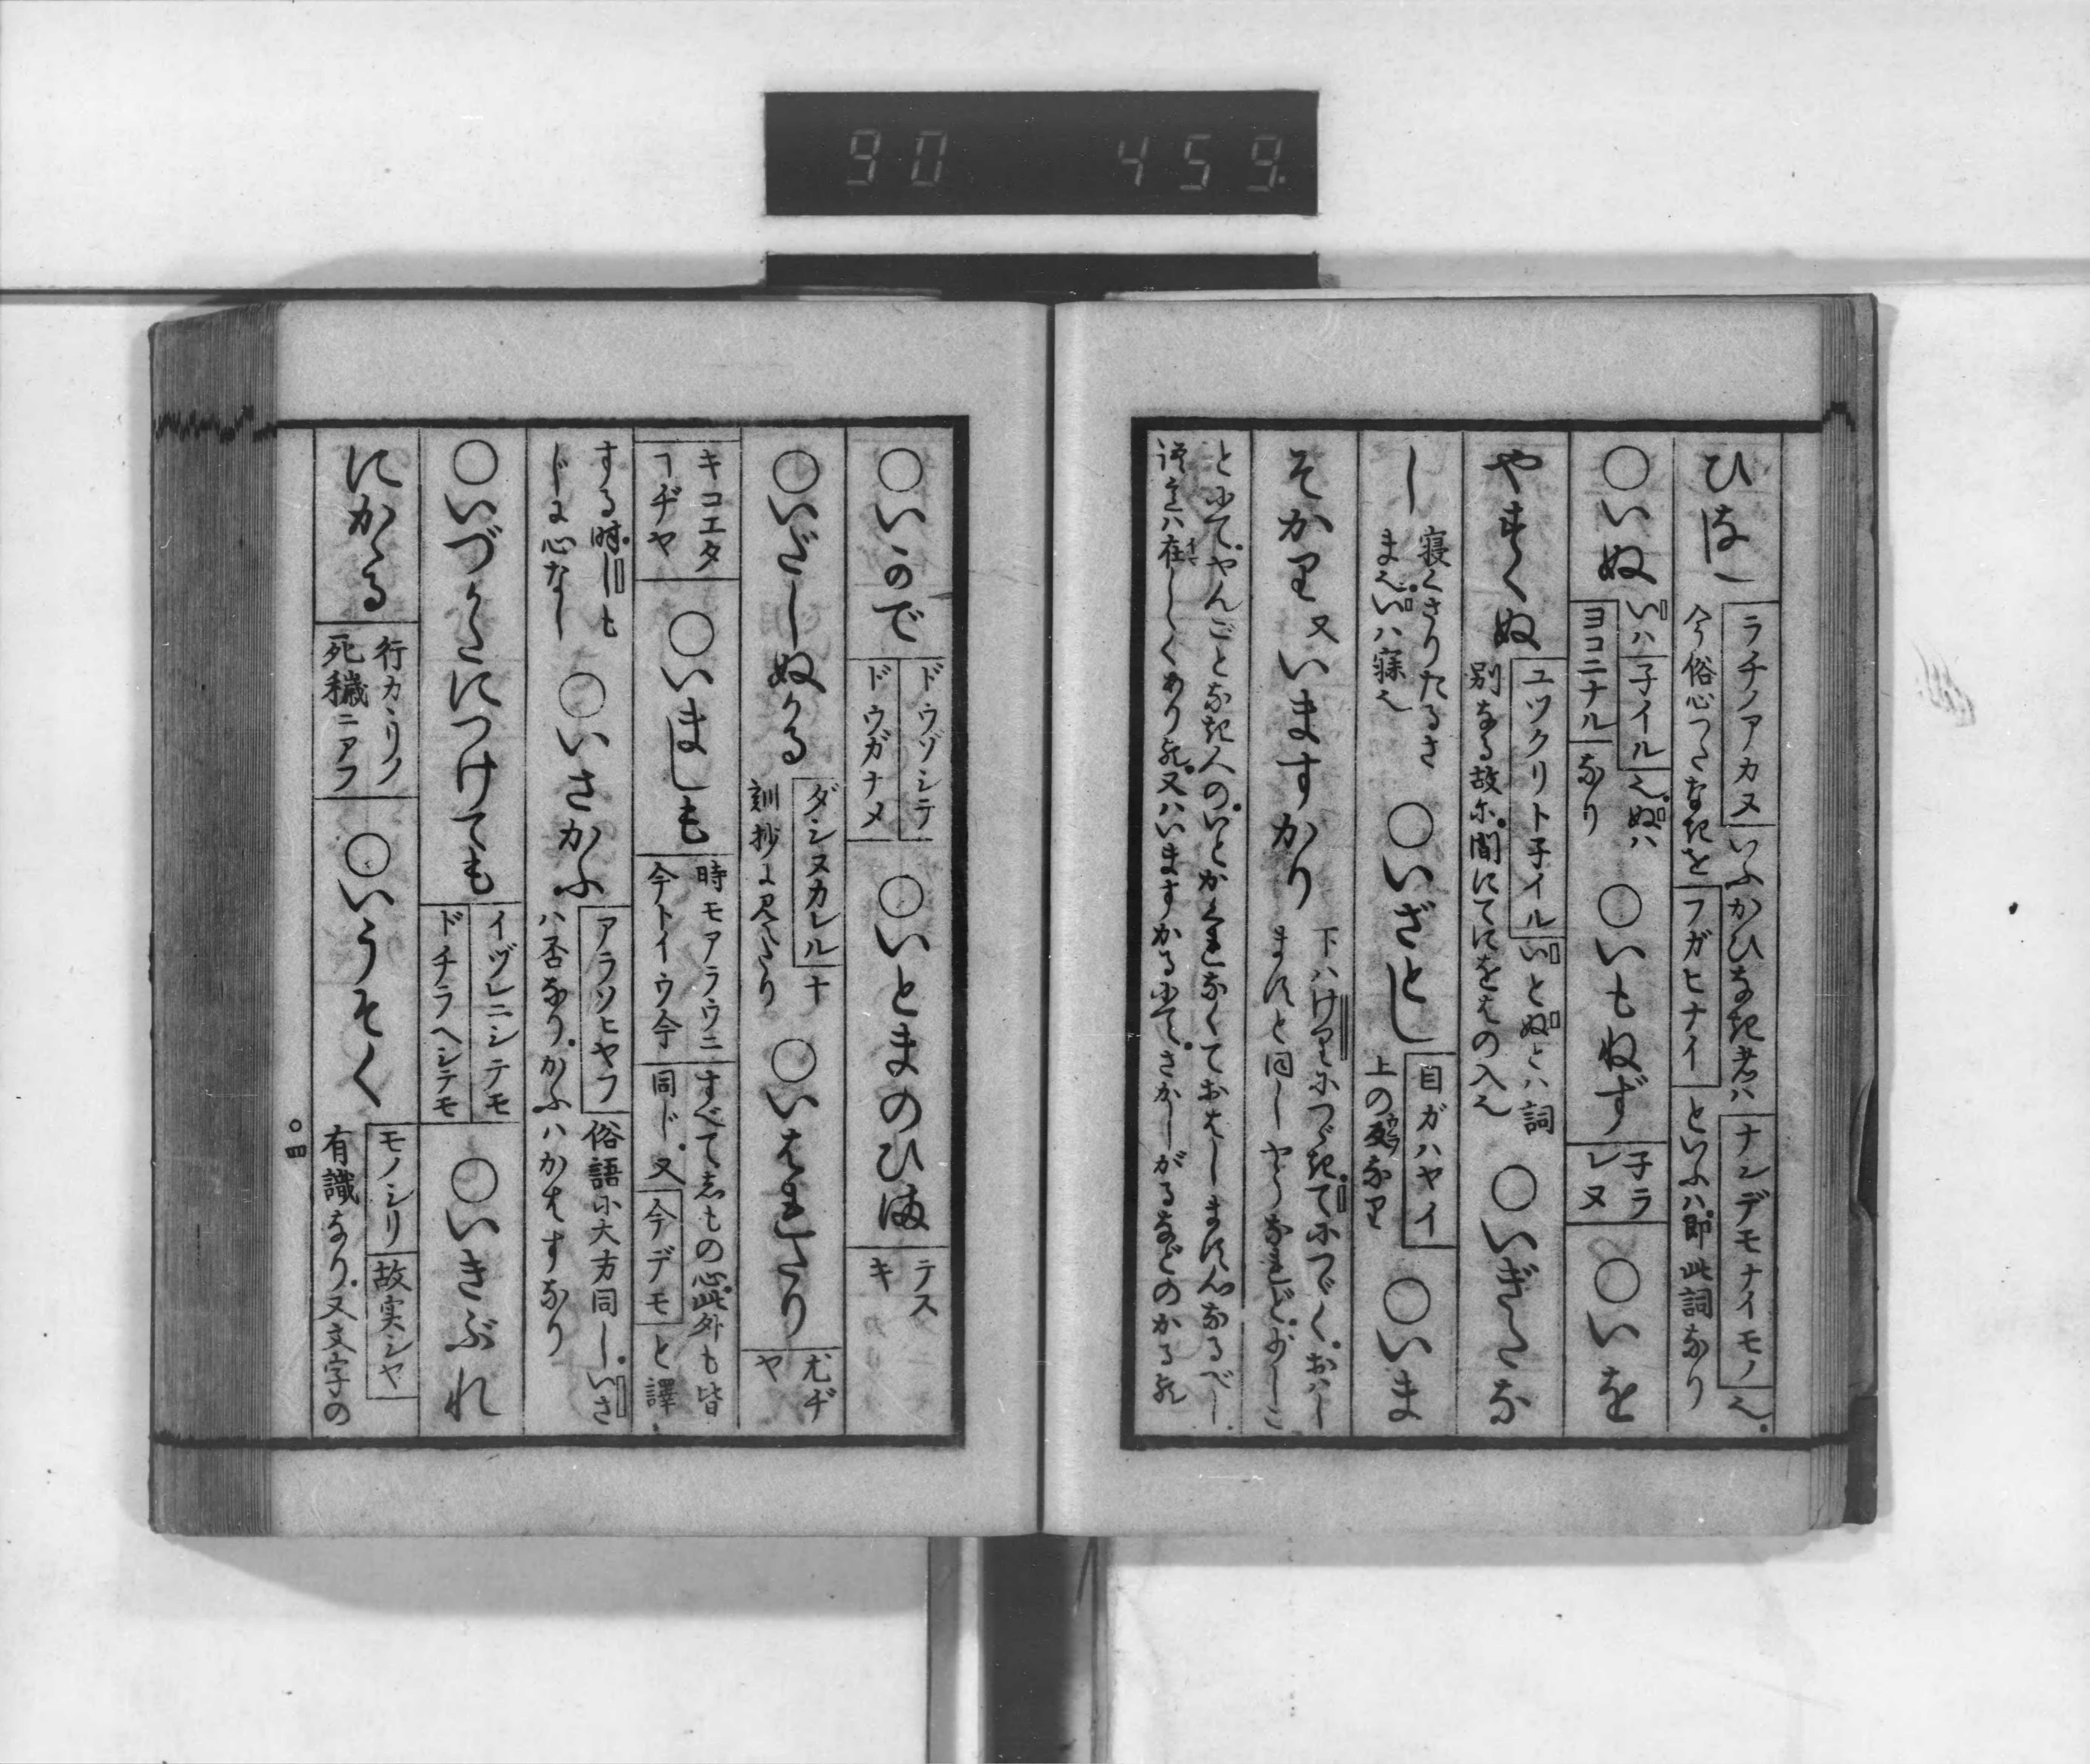 90 459
ひなし
ラチノアカヌいふかひなき者ハナンデモナイモノ也
今俗心つたなきをフガヒナイといふハ即此詞なり
○いぬ
いハ子イル也ぬハ
ヨコニナルなり
○いもねず
子ラ
レヌ
○いを
やすくぬ
ユツクリト子イルいとぬとハ詞
別なる故に間にてにをはの入也
○いぎたな
し
寝くさりたるさ
ま也いハ寐也
○いざとし
目ガハヤイ
上の反なり
○いま
そかり 又いますかり
下ハけりにつゞきてにつゞくおハし
ますと同しやうなれど少しこ
とにてやんごとなき人のいとかくれなくておはしますんなるべし
在しくあり又ハいますかるにてさかしがるなどのかる
○いかで
ドウゾシテ
ドウガナメ
○いとまのひま
テス
キ
○いだしぬかる
ダシヌカレル十
訓抄に見へたり
○いはれたり
尤ヂ
ヤ
キコエタ
ヿヂヤ
○いましも
時モアラウニ
今トイウ今
すべてしもの心此外も皆
同ド又今デモと譯
する時しも
じに心なし
○いさかふ
アラソヒヤフ俗語に大方同しいさ
ハ否なりかふハかはすなり
○いづかたにつけても
イヅレニシテモ
ドチラヘシテモ
○いきぶれ
にかゝる
行カヽリノ
死穢ニアフ
○いうそく
モノシリ故実シヤ
有識なり又文字の
○四